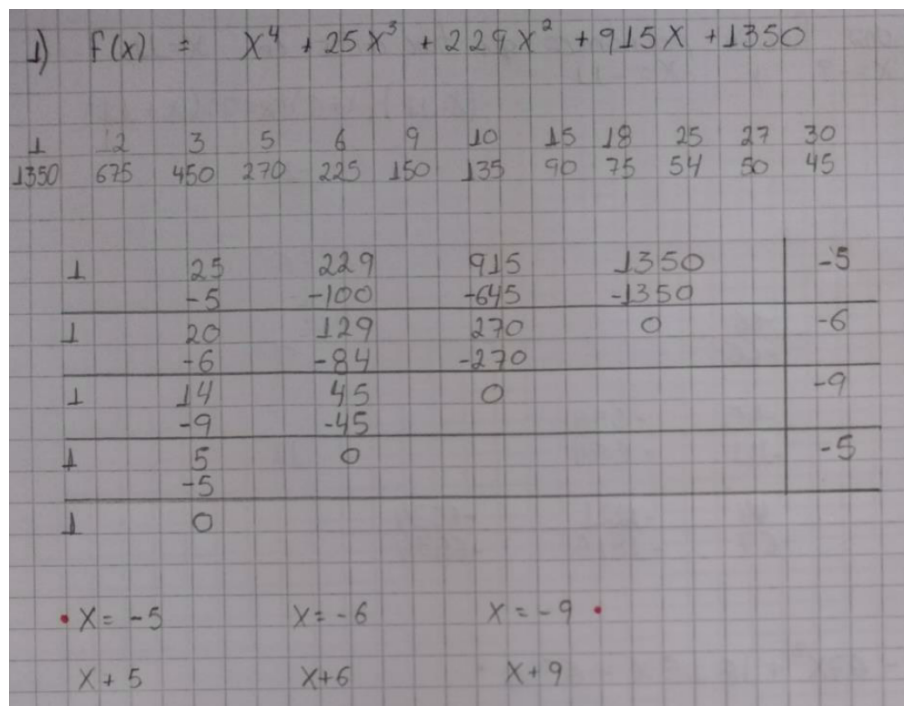 1) F(x) = x⁴ + 25x³ + 229x² + 915x + 1350
1 2 3 5 6 9 10 15 18 25 27 30
1350 675 450 270 225 150 135 90 75 54 50 45
1 25 229 915 1350 -5
-5 -100 -645 -1350
1 20 129 270 0 -6
-6 -84 -270
1 14 45 0 -9
-9 -45
1 5 0 -5
-5
1 0
• x = -5 x = -6 x = -9 •
x + 5 x+6 x+9